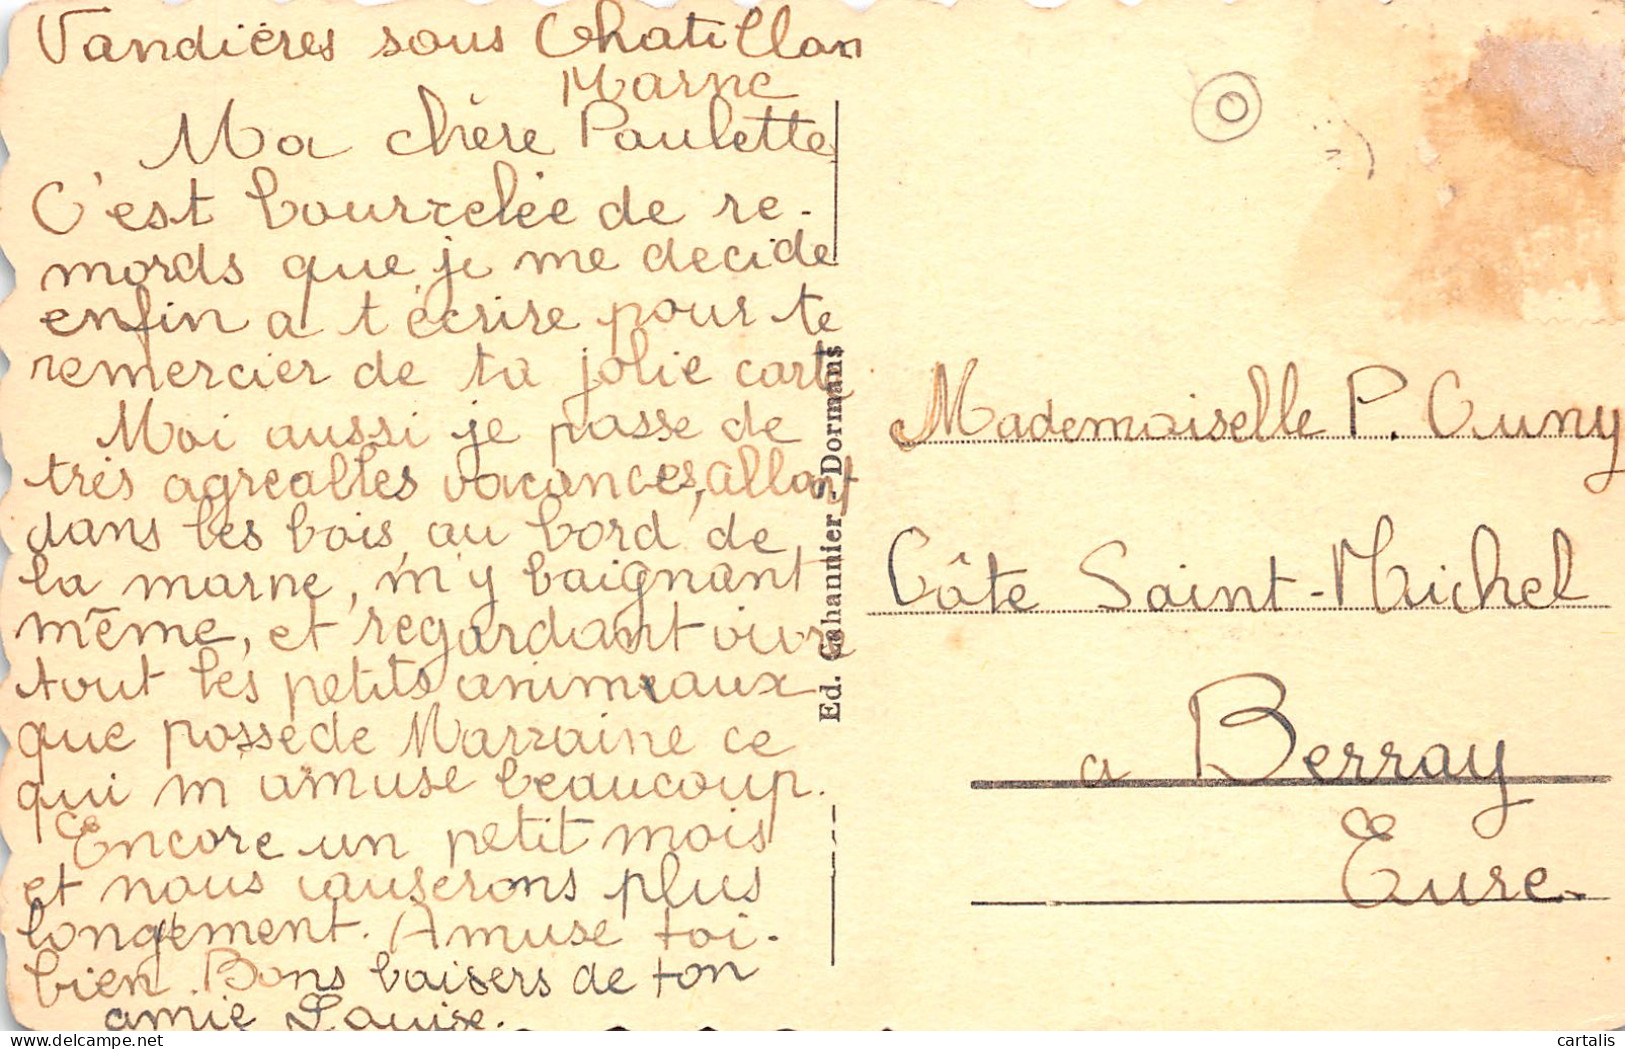 Vandières sous Chatillon
Marne
Ma chère Paulette
C'est bourrelée de re-
mords que je me decide
enfin a t'écrire pour te
remercier de ta jolie carte
Moi aussi je passe de
très agreables vacances, allant
dans les bois, au bord de
la marne, m'y baignant
même, et regardant vivre
tout les petits animeaux
que possède Marraine ce
qui m'amuse beaucoup.
Encore un petit mois
et nous causerons plus
longement. Amuse toi-
bien. Bons baisers de ton
amie Louise.
Ed. Cahannier - Dormans
Mademoiselle P. Cuny
Côte Saint-Michel
a Berray
Eure.
cartalis